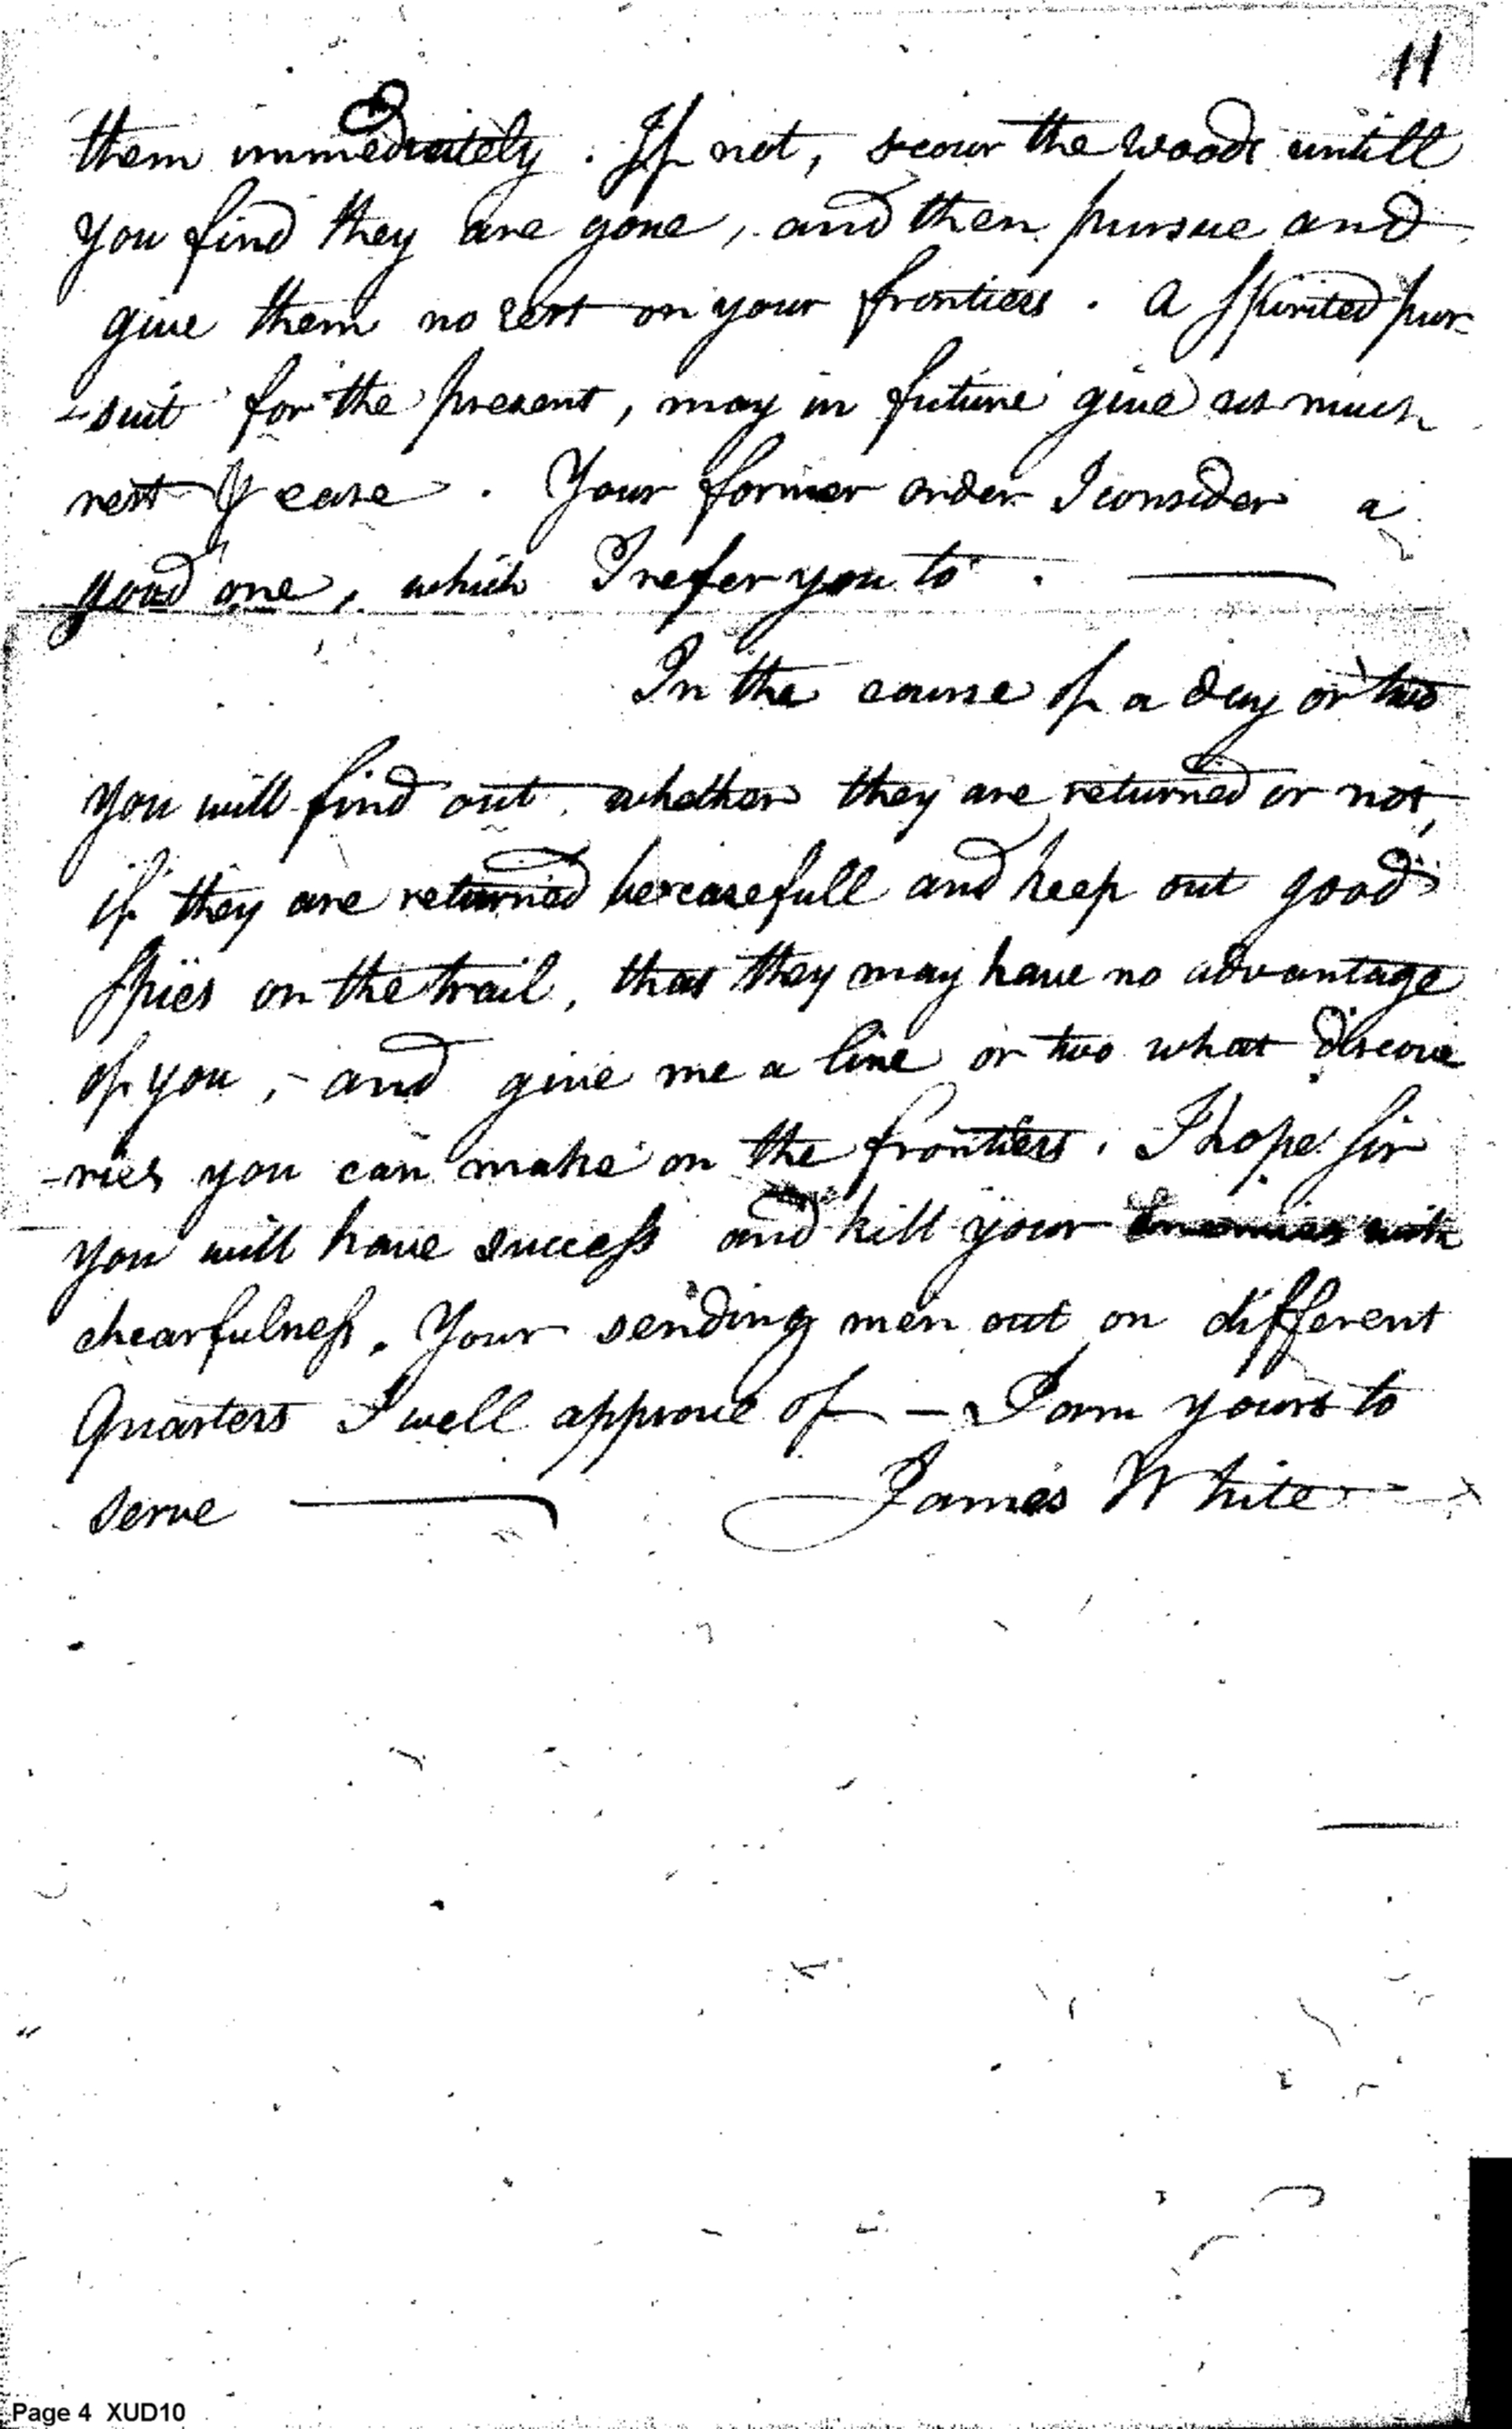 11
them immediately. If not, scour the woods untill
you find they are gone, and then pursue and
give them no rest on your frontiers. A spirited pur-
-suit for the present, may in future give us much
rest & ease. Your former order I consider a
good one, which I refer you to.
In the course of a day or two
you will find out whether they are returned or not,
if they are returned be carefull and keep out good
spies on the trail, that they may have no advantage
of you, - and give me a line or two what discove
-ries you can make on the frontiers. I hope Sir
you will have success and kill your Enemies with
chearfulness. Your sending men out on different
Quarters I well approve of — I am yours to
serve James White
Page 4 XUD10